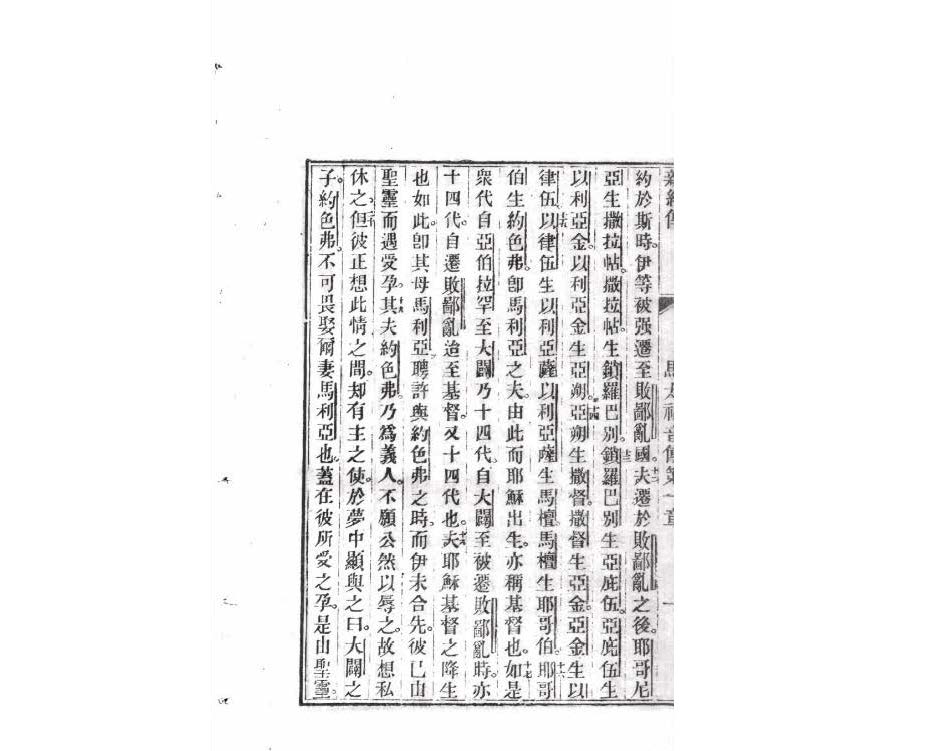 馬太福音傳第一章 一
約於斯時伊等被强遷至敗鄙亂國夫遷於敗鄙亂之後耶哥尼
亞生撒拉帖撒拉帖生鎖羅巴別鎖羅巴別生亞庇伍亞庇伍生
以利亞金以利亞金生亞朔亞朔生撒督撒督生亞金亞金生以
律伍以律伍生以利亞薩以利亞薩生馬檀馬檀生耶哥伯耶哥
伯生約色弗卽馬利亞之夫由此而耶穌出生亦稱基督也如是
衆代自亞伯拉罕至大闢乃十四代自大闢至被遷敗鄙亂時亦
十四代自遷敗鄙亂迨至基督又十四代也夫耶穌基督之降生
也如此卽其母馬利亞聘許與約色弗之時而伊未合先彼已由
聖靈而遇受孕其夫約色弗乃爲義人不願公然以辱之故想私
休之但彼正想此情之間却有主之使於夢中顯與之曰大闢之
子約色弗不可畏娶爾妻馬利亞也蓋在彼所受之孕是由聖靈